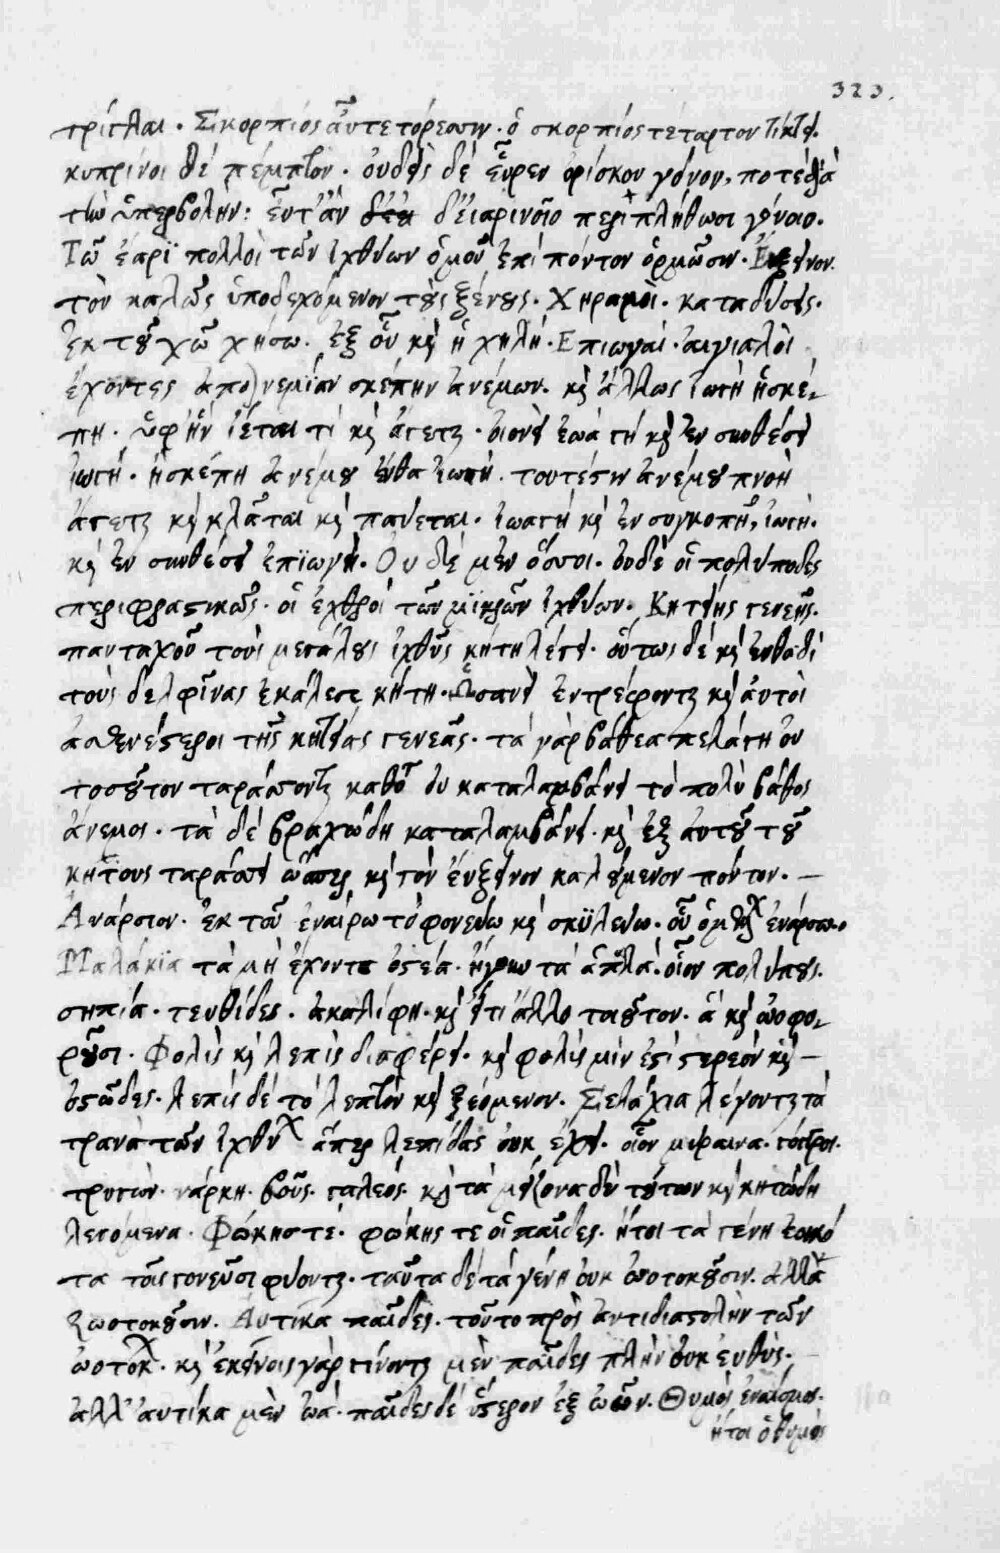 323.
τρίγλαι. Σκορπίος αὖτε τόρεσσιν. ὁ σκορπίος τέταρτον τίκτει.
κυπρῖνοι δέ πέμπτον. οὐδεὶς δὲ εὗρεν ὀρίσκου γόνον, ποτε διὰ
τὴν ὑπερβολήν: εὖτ' ἂν δ' εἰαρινοῖο περιπλήθωσι γόνοιο.
Τῷ ἔαρι πολλοὶ τῶν ἰχθύων ὁμοῦ ἐπὶ πόντον ὁρμῶσιν. Εὔξεινον
τὸν καλῶς ὑποδεχόμενον τοὺς ξένους. Χηραμοὶ. καταδύσεις.
ἐκ τοῦ χῶ χήσω. ἐξ οὗ καὶ ἡ χηλή. Επιωγαί. αἰγιαλοὶ
ἔχοντες νεμίαν σκέπην ἀνέμων. καὶ ἄλλως ἰωγὴ ἡ σκέ-
πη. ὑφ' ἣν ἵεται τί καὶ ἄγεται. καὶ ἐν συνθέσει
ἰωγή. ἡ σκέπη ἀνέμου ἔνθα. τουτέστιν ἀνέμου πνοὴ
ἄγεται καὶ κλᾶται καὶ παύεται. ἰωαγή καὶ ἐν συγκοπῇ, ἰωγή.
καὶ ἐν συνθέσει ἐπϊωγή. Ου δέ μὲν ὅσσοι. οὐδὲ οἱ πολύποδες
περιφραστικῶς. οἱ ἐχθροί τῶν μϊκρῶν ἰχθύων. Κητείης γενεῆς.
πανταχοῦ τοὺς μεγάλους ἰχθῦς κήτη λέγει. οὕτως δέ καὶ ἐνθαδὶ
τοὺς δελφῖνας ἐκάλεσε κήτη. Ὡσανεὶ ἐντρέφονται καὶ αὐτοὶ
ἀσθενέστεροι τῆς κητείας γενεᾶς. τὰ γὰρ βάθεα πελάγη οὐ
τοσοῦτον ταράσσονται καθότι οὐ καταλαμβάνει τὸ πολὺ βάθος
ἄνεμοι. τὰ δὲ βραχώδη καταλαμβάνει. καὶ ἐξ αὐτοῦ τοῦ
κήτους ταράσσει ὥσπερ καὶ τὸν εὔξεινον καλούμενον πόντον. —
Ανάρσιον. ἐκ τοῦ ἐναίρω τὸ φονεύω καὶ σκϋλεύω. οὗ ὁ μέλλων ἐνάρσω.
Μαλάκϊα τὰ μὴ ἔχοντα ὀστέα. ἤγουν τὰ ἁπλά. οἷον πολύπους.
σηπία. τευθίδες. ἀκαλίφη. καὶ εἴ τι ἄλλο τοιοῦτον. ἃ καὶ ὠοφο-
ροῦσι. Φολὶς καὶ λεπὶς διαφέρει. καὶ φολὶς μὲν ἐστί στερεόν καὶ —
ὀστῶδες. λεπὶς δέ τὸ λεπτὸν καὶ ξεόμενον. Σελάχια λέγονται τὰ
τρανὰ τῶν ἰχθύων ἅπερ λεπίδας οὐκ ἔχει. οἷον μύραινα.
τρυγών. νάρκη. βοῦς. γαλεός. καὶ τὰ μείζονα δὲ τούτων καὶ κητώδη
λεγόμενα. Φώκης τέ. φώκης τε οἱ παῖδες. ἤτοι τὰ γένη ἐοικό
τα τοῖς γονεῦσι φύονται. ταῦτα δὲ τὰ γένη οὐκ ὠοτοκοῦσιν. ἀλλὰ
ζωοτοκοῦσιν. Αὐτίκα παῖδες. τοῦτο πρὸς ἀντιδιαστολὴν τῶν
ὠοτόκων. καὶ ἐκείνοις γὰρ γίνονται μὲν παῖδες πλὴν οὐκ εὐθὺς.
ἀλλ' αὐτίκα μὲν ὠά. παῖδες δέ ὕστερον ἐξ ὠῶν. Θυμὸς ἐναίσιμος.
ἤτοι ὁ θυμὸς